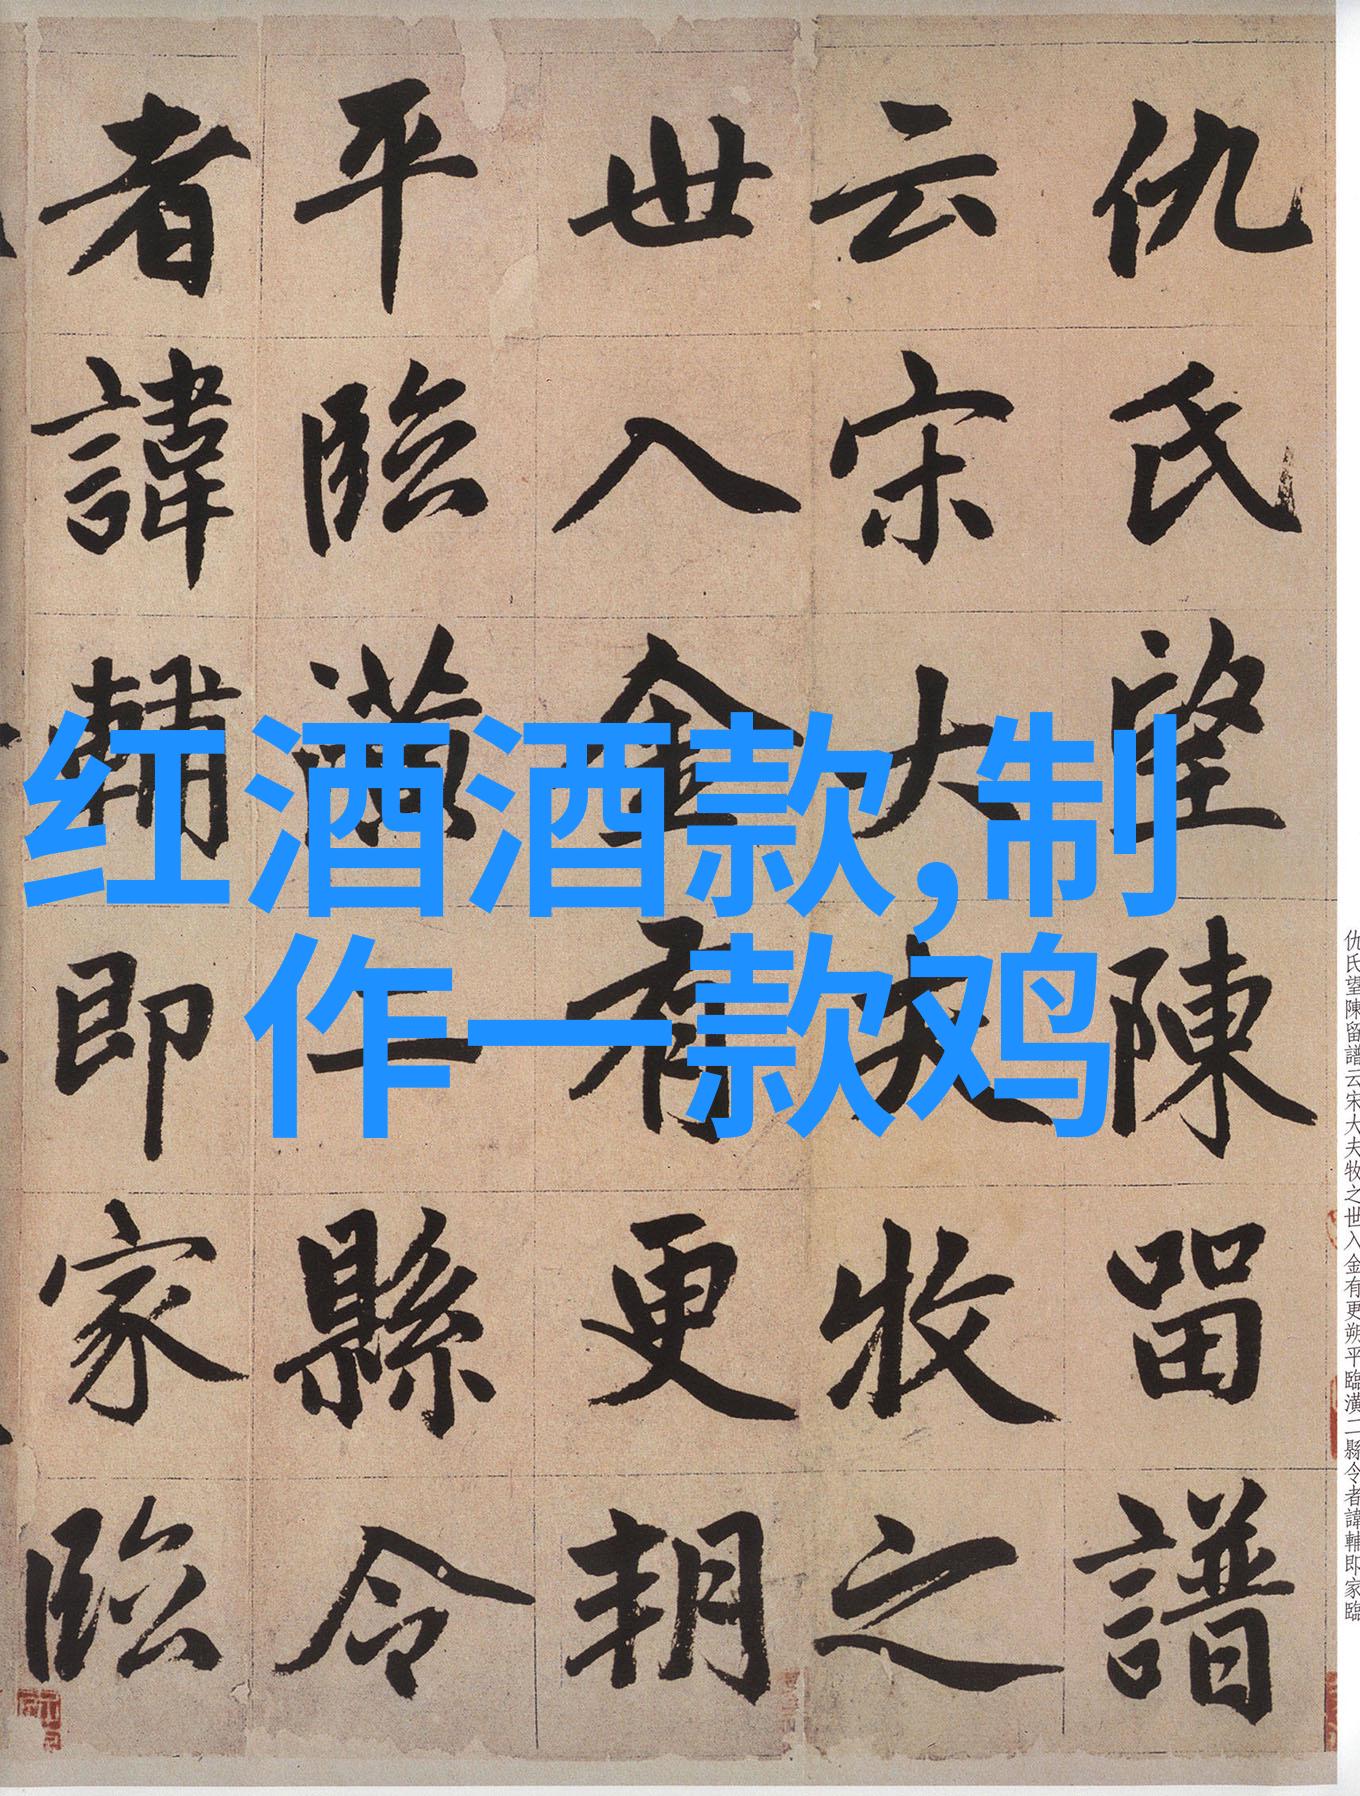 仇氏望陳留譜
云宋大夫牧之
世入金有更朔
平臨潢二縣令
者諱輔即家臨
红酒酒款,制
作一款鸡
仇氏望陳留譜云宋大夫牧之世入金有更朔平臨潢二縣令者諱輔即家臨